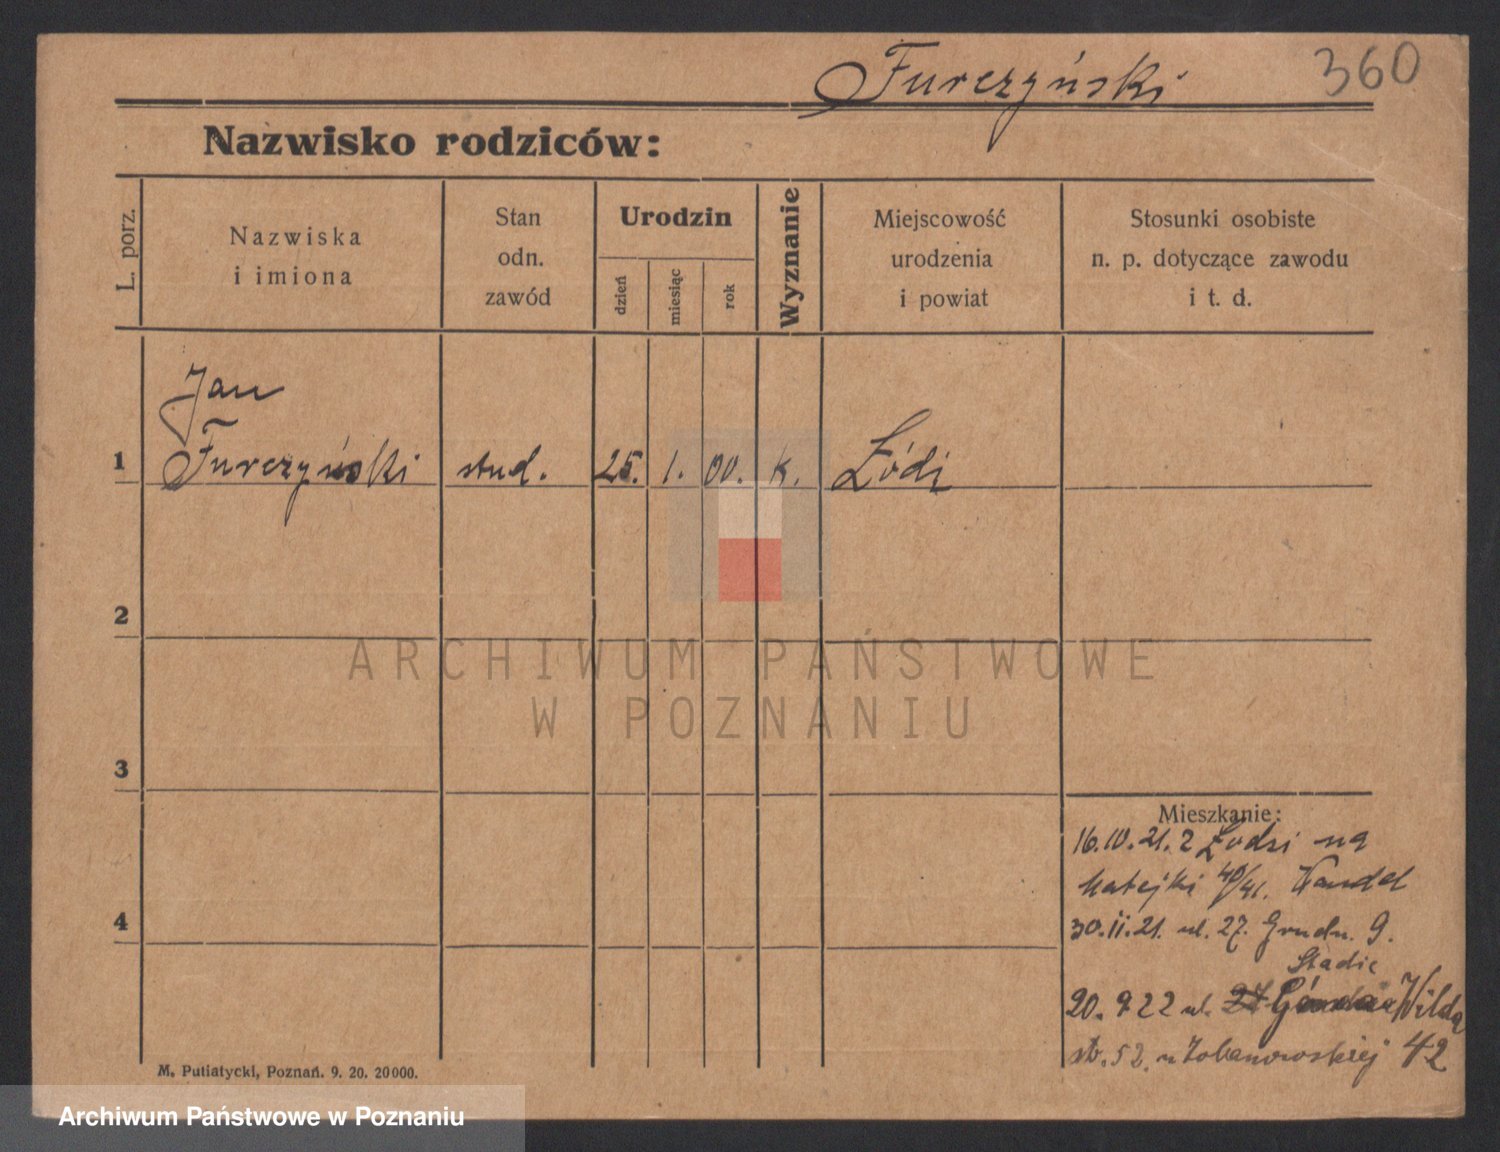 360
Furczyński
Nazwisko rodziców:
L. porz.
Nazwiska
i imiona
Stan
odn.
zawód
Urodzin
dzień
miesiąc
rok
Wyznanie
Miejscowość
urodzenia
i powiat
Stosunki osobiste
n. p. dotyczące zawodu
i t. d.
Jan
1 Furczyński stud. 25. 1. 00. k. Łódź
2
ARCHIWUM PAŃSTWOWE
W POZNANIU
3
Mieszkanie:
16.10.21. z Łodzi na
Matejki 40/41.
4
30.11.21. ul. 27. Grudn. 9.
20. 9 22 ul. 27 Górna Wilda
str. 52. 42
M. Putiatycki, Poznań. 9. 20. 20000.
Archiwum Państwowe w Poznaniu